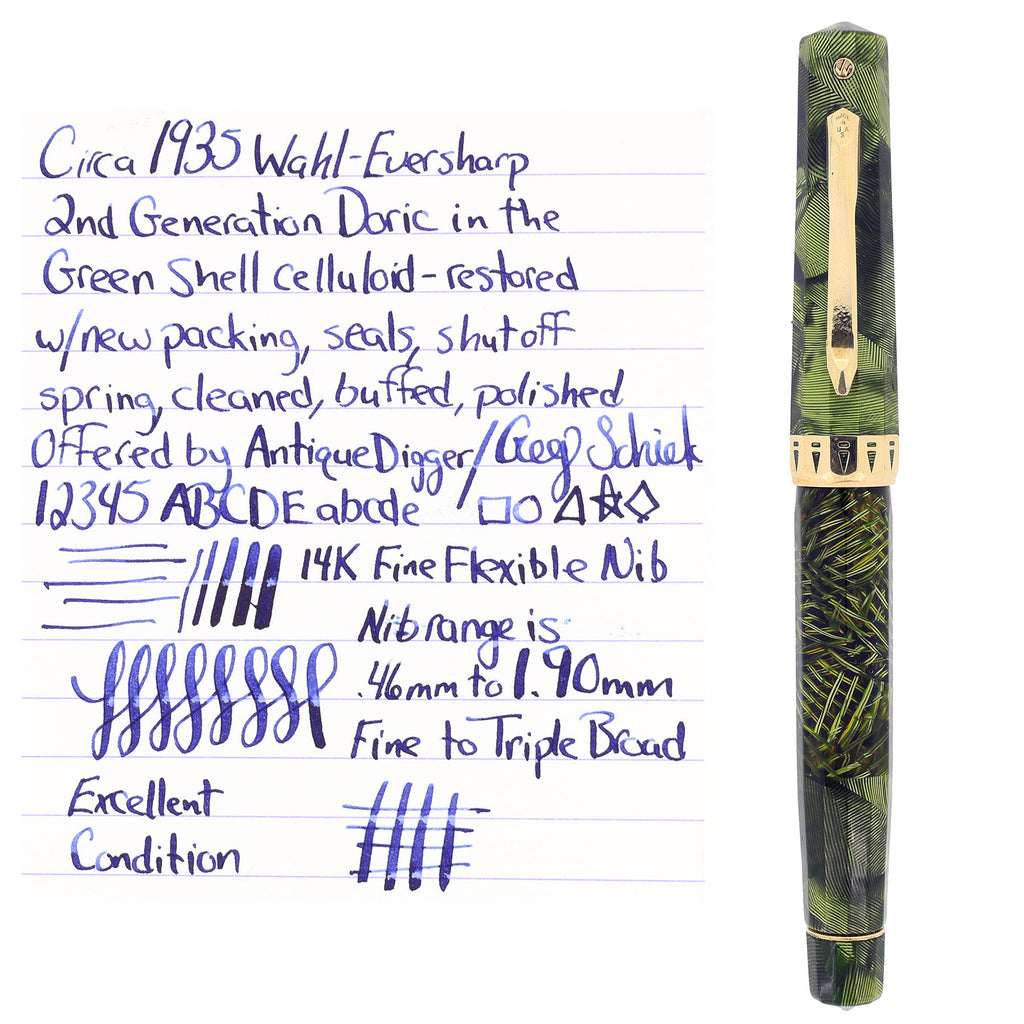 Circa 1935 Wahl-Eversharp
2nd Generation Doric in the
Green Shell celluloid - restored
w/new packing, seals, shutoff
spring, cleaned, buffed, polished
Offered by AntiqueDigger/Greg Schiek
12345 ABCDE abcde
14K Fine Flexible Nib
Nib range is
.46mm to 1.90mm
Fine to Triple Broad
Excellent
Condition
W
MADE
IN
U.S.A